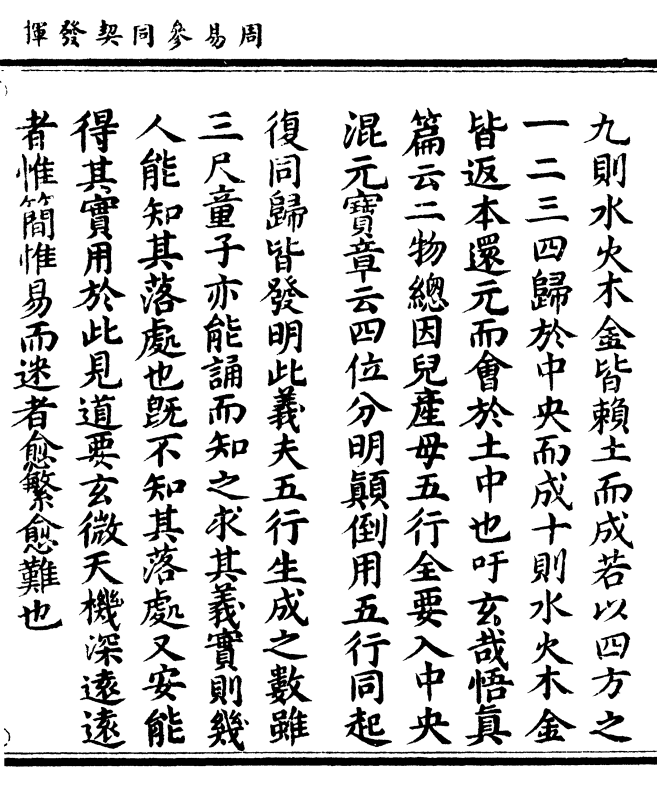 周易參同契發揮
九則水火木金皆賴土而成若以四方之
一二三四歸於中央而成十則水火木金
皆返本還元而會於土中也吁玄哉悟真
篇云二物總因兒產母五行全要入中央
混元寶章云四位分明顛倒用五行同起
復同歸皆發明此義夫五行生成之數雖
三尺童子亦能誦而知之求其義實則幾
人能知其落處也既不知其落處又安能
得其實用於此見道要玄微天機深遠遠
者惟簡惟易而迷者愈繁愈難也